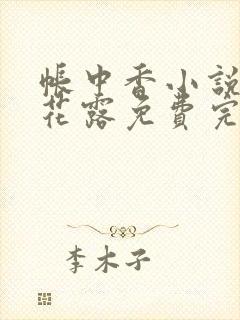 帐中香小說
花露免費完
李木子